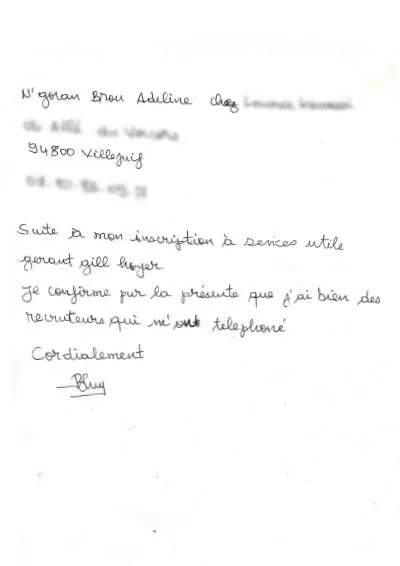 N'goran Brou Adeline chez
94800 Villejuif
Suite à mon inscription à services utile
gerant gill hoyer
Je confirme pur la présente que j'ai bien des
recruteurs qui m'ont telephoné
Cordialement